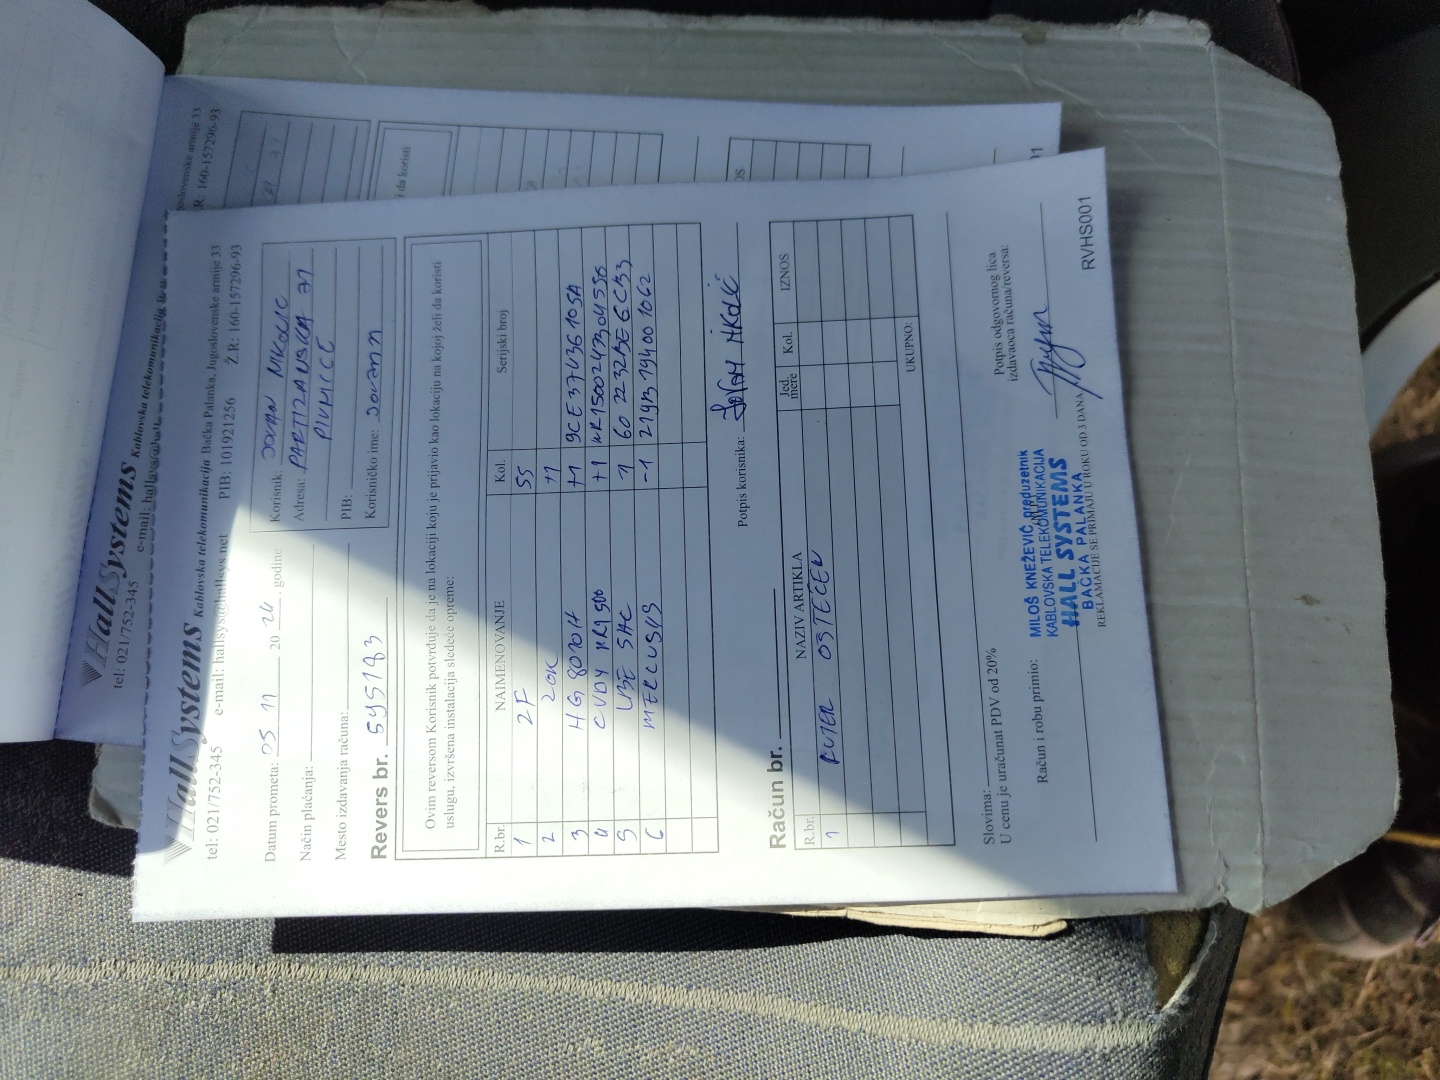 HallSystems Kablovska telekomunikacija
tel: 021/752-345 e-mail: hallsys@
slovenske armije 33
R: 160-157296-93
i da koristi
HallSystems Kablovska telekomunikacija Bačka Palanka, Jugoslovenske armije 33
tel: 021/752-345 e-mail: hallsys@hallsys.net PIB: 101921256 Ž.R: 160-157296-93
Datum prometa: 05 11 20 24 . godine
Način plaćanja:
Mesto izdavanja računa:
Korisnik: JOVAN NIKOLIC
Adresa: PARTIZANSKA 27
PIVNICE
PIB:
Korisničko ime:
Revers br. 545183
Ovim reversom Korisnik potvrđuje da je na lokaciji koju je prijavio kao lokaciju na kojoj želi da koristi
uslugu, izvršena instalacija sledeće opreme:
R.br. NAIMENOVANJE Kol. Serijski broj
1 2F 55
2 20K +1
3 HG 8010H +1 9CE37436105A
4 CUDY WR1300 +1 WR1500247304556
5 LBE 5AC -1 602232BE6CB3
6 MERCUSYS -1 2193194001062
Potpis korisnika: Jovan Nikolić
Račun br.
R.br. NAZIV ARTIKLA Jed. mere Kol. IZNOS
1 RUTER OŠTEĆEN
UKUPNO:
Slovima:
U cenu je uračunat PDV od 20%
Račun i robu primio:
Potpis odgovornog lica
izdavaoca računa/reversa:
MILOŠ KNEŽEVIĆ preduzetnik
KABLOVSKA TELEKOMUNIKACIJA
HALL SYSTEMS
BAČKA PALANKA
REKLAMACIJE SE PRIMAJU U ROKU OD 3 DANA
RVHS001